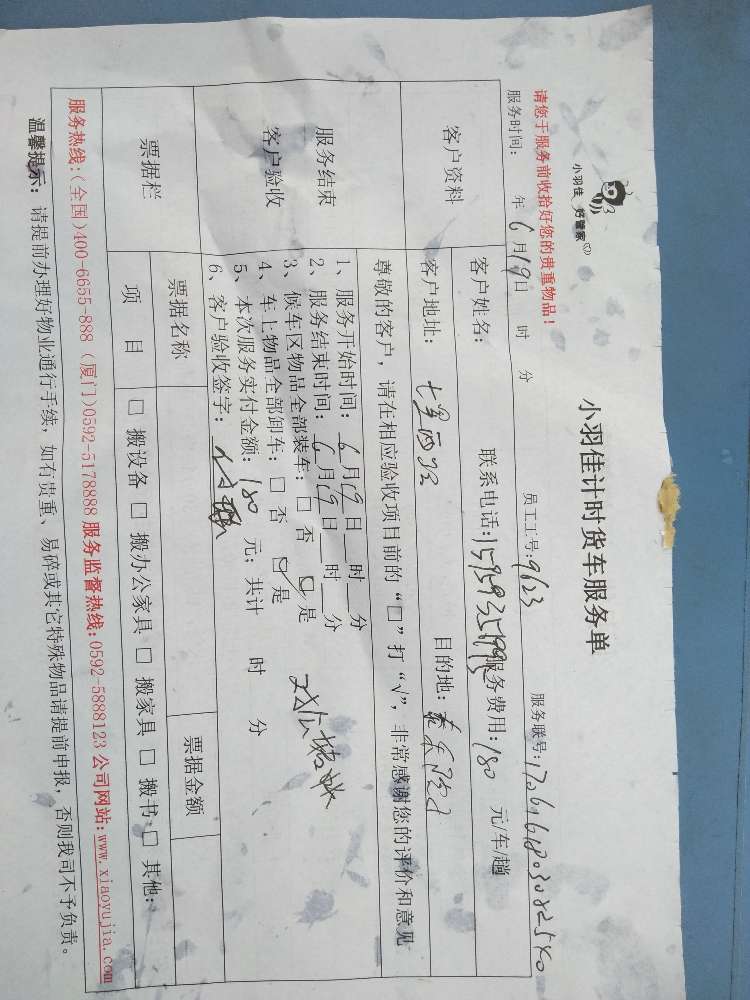 小羽佳 好管家
小羽佳计时货车服务单
请您于服务前收拾好您的贵重物品！
员工工号:9623 服务联号:
服务时间: 年6月19日 时 分
客户资料
客户姓名: 联系电话: 服务费用:180 元/车/趟
客户地址: 目的地:
服务结束
客户验收
尊敬的客户，请在相应验收项目前的“□”打“√”，非常感谢您的评价和意见
1、服务开始时间: 6月19日 时 分
2、服务结束时间: 6月19日 时 分
3、候车区物品全部装车: □ 否 ☑ 是
4、车上物品全部卸车: □ 否 ☑ 是
5、本次服务实付金额: 180 元; 共计 时 分
6、客户验收签字:
票据栏
票据名称 票据金额
项 目 □ 搬设备 □ 搬办公家具 □ 搬家具 □ 搬书 □ 其他:
服务热线:(全国)400-6655-888 (厦门)0592-5178888 服务监督热线:0592-5888123 公司网站:www.xiaoyujia.com
温馨提示: 请提前办理好物业通行手续，如有贵重、易碎或其它特殊物品请提前申报，否则我司不予负责。